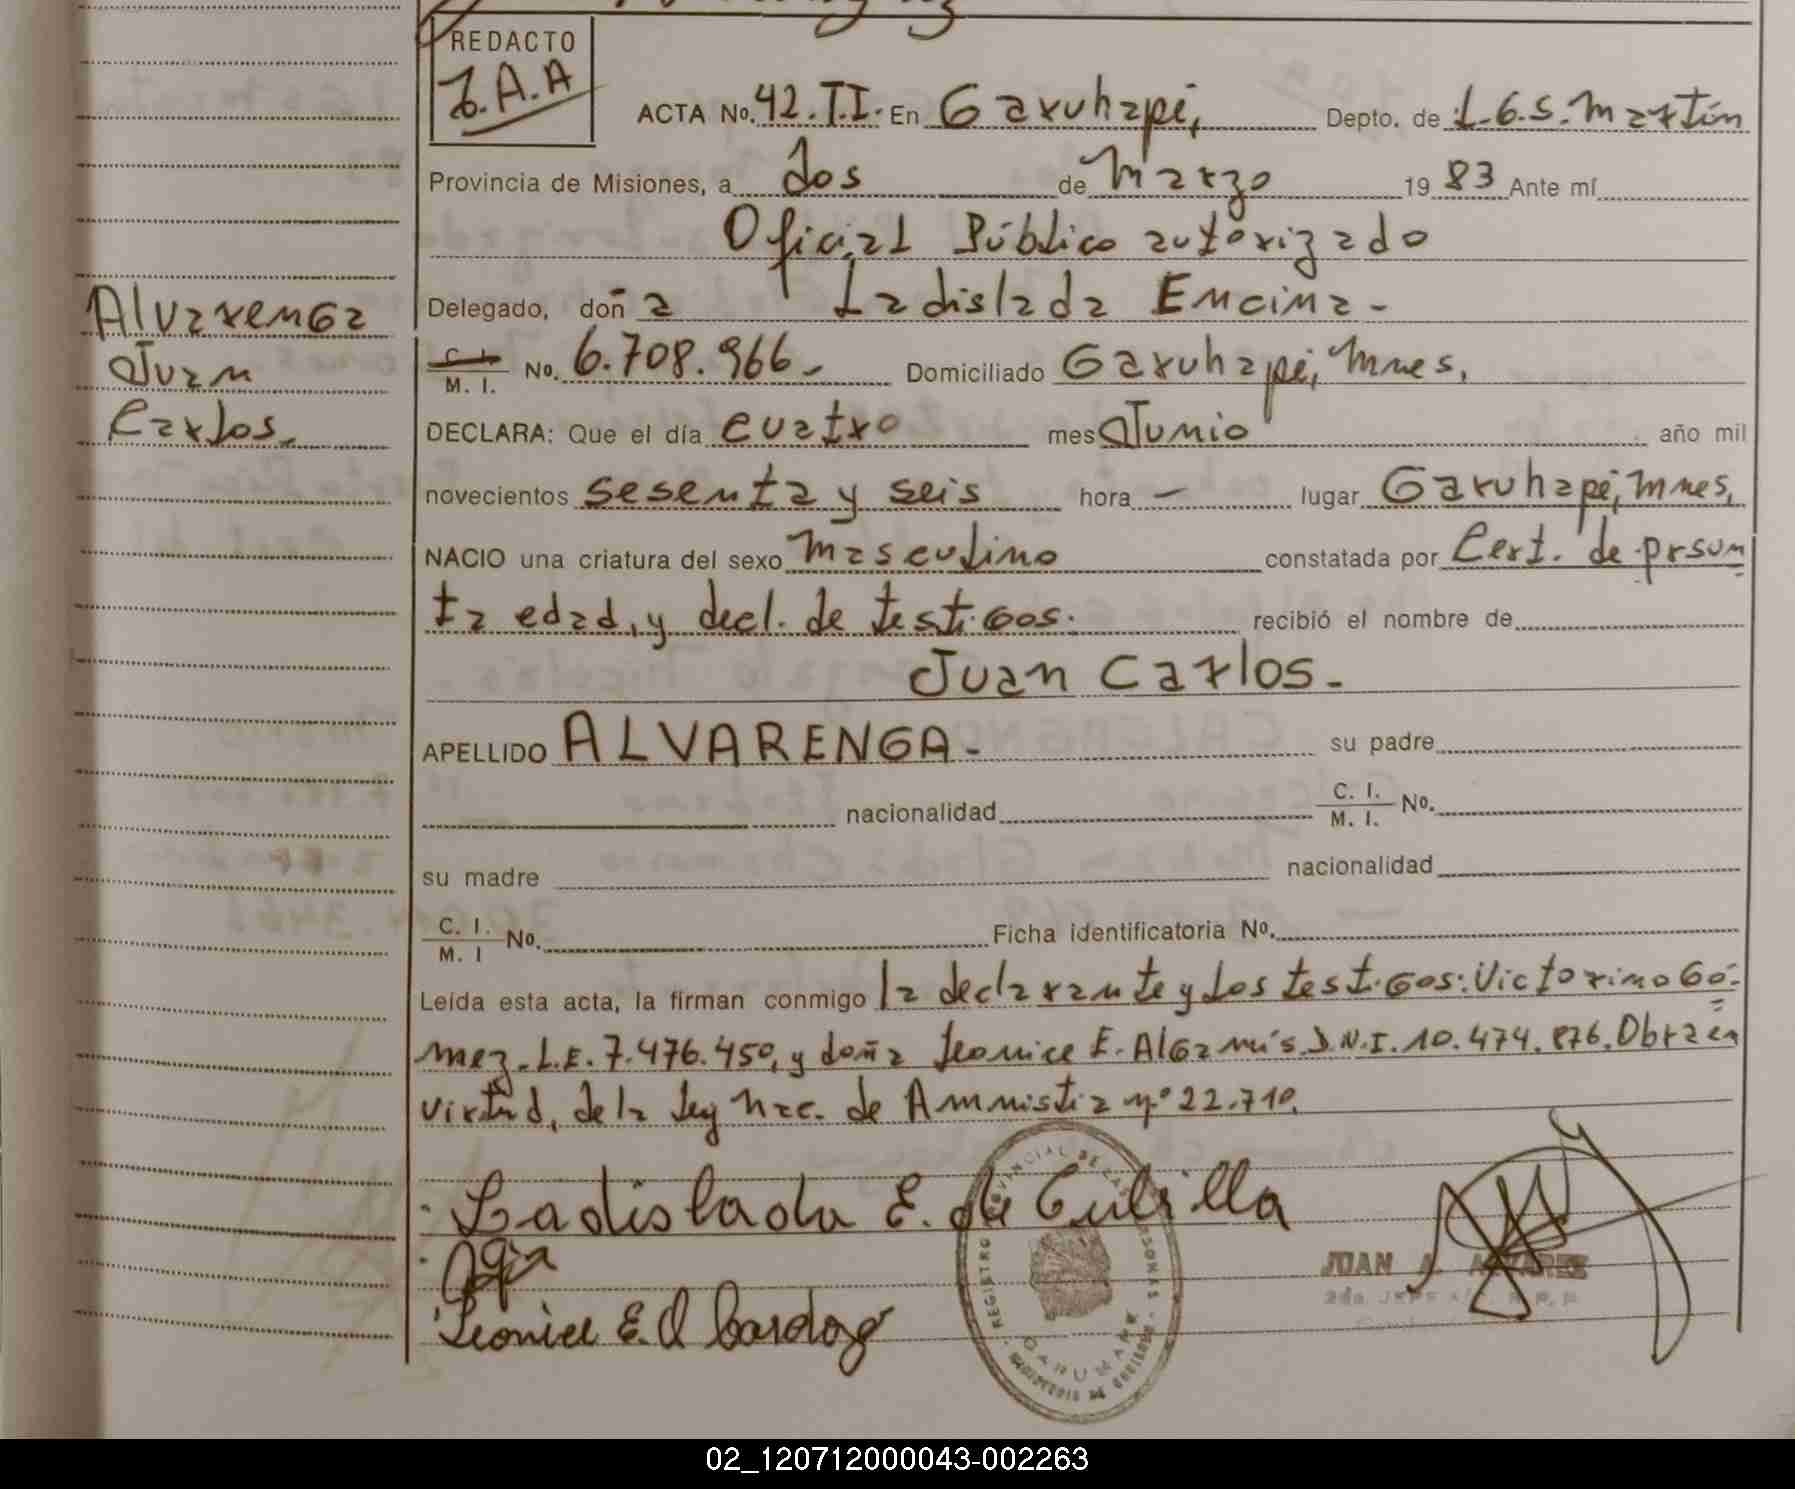 REDACTO
J.A.A
ACTA No. 42.T.I. En Garuhapé, Depto. de L.G.S. Martín
Provincia de Misiones, a dos de Marzo 1983 Ante mí
Oficial Público autorizado
Delegado, doña Ladislada Encina -
C. I. M. I. No. 6.708.966- Domiciliado Garuhapé, Mnes,
DECLARA: Que el día cuatro mes Junio año mil
novecientos sesenta y seis hora — lugar Garuhapé, Mnes,
NACIO una criatura del sexo Masculino constatada por Cert. de prsun
ta edad, y decl. de testigos. recibió el nombre de
Juan Carlos.-
APELLIDO ALVARENGA- su padre
nacionalidad C. I. M. I. No.
su madre nacionalidad
C. I. M. I No. Ficha identificatoria No.
Leída esta acta, la firman conmigo la declarante y los testigos: Victorino Gó=
mez. L.E. 7.476.450, y doña Leonice E. Algamis. D.N.I. 10.474.876. Obra en
virtud, de la Ley Nac. de Amnistia nº 22.710.
Alvarenga
Juan
Carlos.
Ladislada E. de Cubilla
Leonice E. d Cardozo
JUAN A. ALVAREZ
GARUHAPE
02_120712000043-002263